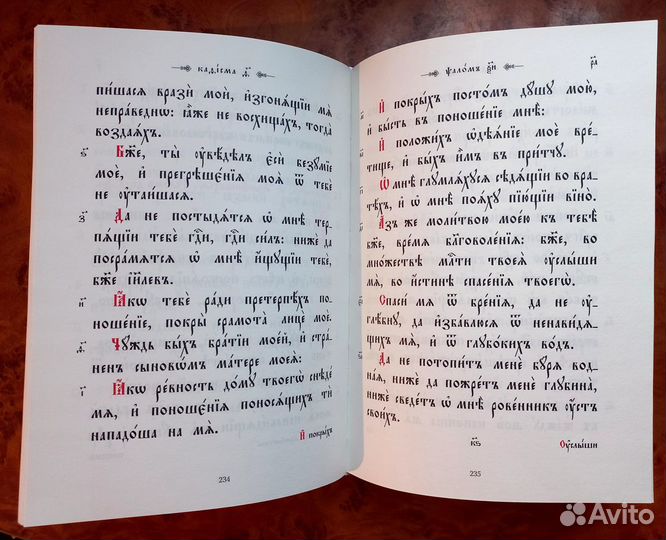 каѳісма ѳ҃.
пишася вразѝ моѝ, изгонѧ́щїи мѧ̀
непра́веднѡ: ꙗ҆̀же не восхища́хъ, тогда̀
воздаѧ́хъ.
Бж҃е, ты̀ ᲂу҆вѣ́дѣлъ є҆сѝ безꙋ́мїе
моѐ, и҆ прегрѣшє́нїѧ моѧ̑ ѿ тебє̀
не ᲂу҆таи́шасѧ.
Да не постыдѧ́тсѧ ѡ҆ мнѣ̀ тер-
пѧ́щїи тебѐ гдⷭ҇и, гдⷭ҇и си́лъ: нижѐ да
посра́мѧтсѧ ѡ҆ мнѣ̀ и҆́щꙋщїи тебѐ,
бж҃е і҆и҃левъ.
Ꙗ҆́кѡ тебє̀ ра́ди претерпѣ́хъ по-
ноше́нїе, покры̀ срамота̀ лицѐ моѐ.
Чꙋ́ждь бы́хъ бра́тїи мое́й, и҆ стра́-
ненъ сыновѡ́мъ ма́тере моеѧ̀:
Ꙗ҆́кѡ ре́вность до́мꙋ твоегѡ̀ снѣде́
мѧ, и҆ понѡшє́нїѧ поносѧ́щихъ тѝ
нападо́ша на мѧ̀.
И҆ покры́хъ
234
ѱало́мъ ѯ҃и
И҆ покры́хъ посто́мъ дꙋ́шꙋ мою̀,
и҆ бы́сть въ поноше́нїе мнѣ̀:
И҆ положи́хъ ѡ҆дѣѧ́нїе моѐ вре́-
тище, и҆ бы́хъ и҆̀мъ въ при́тчꙋ.
Ѡ҆ мнѣ̀ глꙋмлѧ́хꙋсѧ сѣдѧ́щїи во вра-
тѣ́хъ, и҆ ѡ҆ мнѣ̀ поѧ́хꙋ пїю́щїи вїно̀.
А҆́зъ же моли́твою мое́ю къ тебѣ̀
бж҃е, вре́мѧ бл҃говоле́нїѧ: бж҃е, во
мно́жествѣ млⷭ҇ти твоеѧ̀ ᲂу҆слы́ши
мѧ̀, во и҆́стинѣ спасе́нїѧ твоегѡ̀.
Спаси́ мѧ ѿ бре́нїѧ, да не ᲂу҆-
глѣ́бнꙋ, да и҆зба́влюсѧ ѿ ненави́дѧ-
щихъ мѧ̀, и҆ ѿ глꙋбо́кихъ во́дъ.
Да не пото́питъ менѐ бꙋ́рѧ во́д-
наѧ, нижѐ да пожре́тъ менѐ глꙋбина̀,
нижѐ сведе́тъ ѡ҆ мнѣ̀ рове́нникъ ᲂу҆́стъ
свои́хъ.
ᲂу҆слы́ши
235
Avito